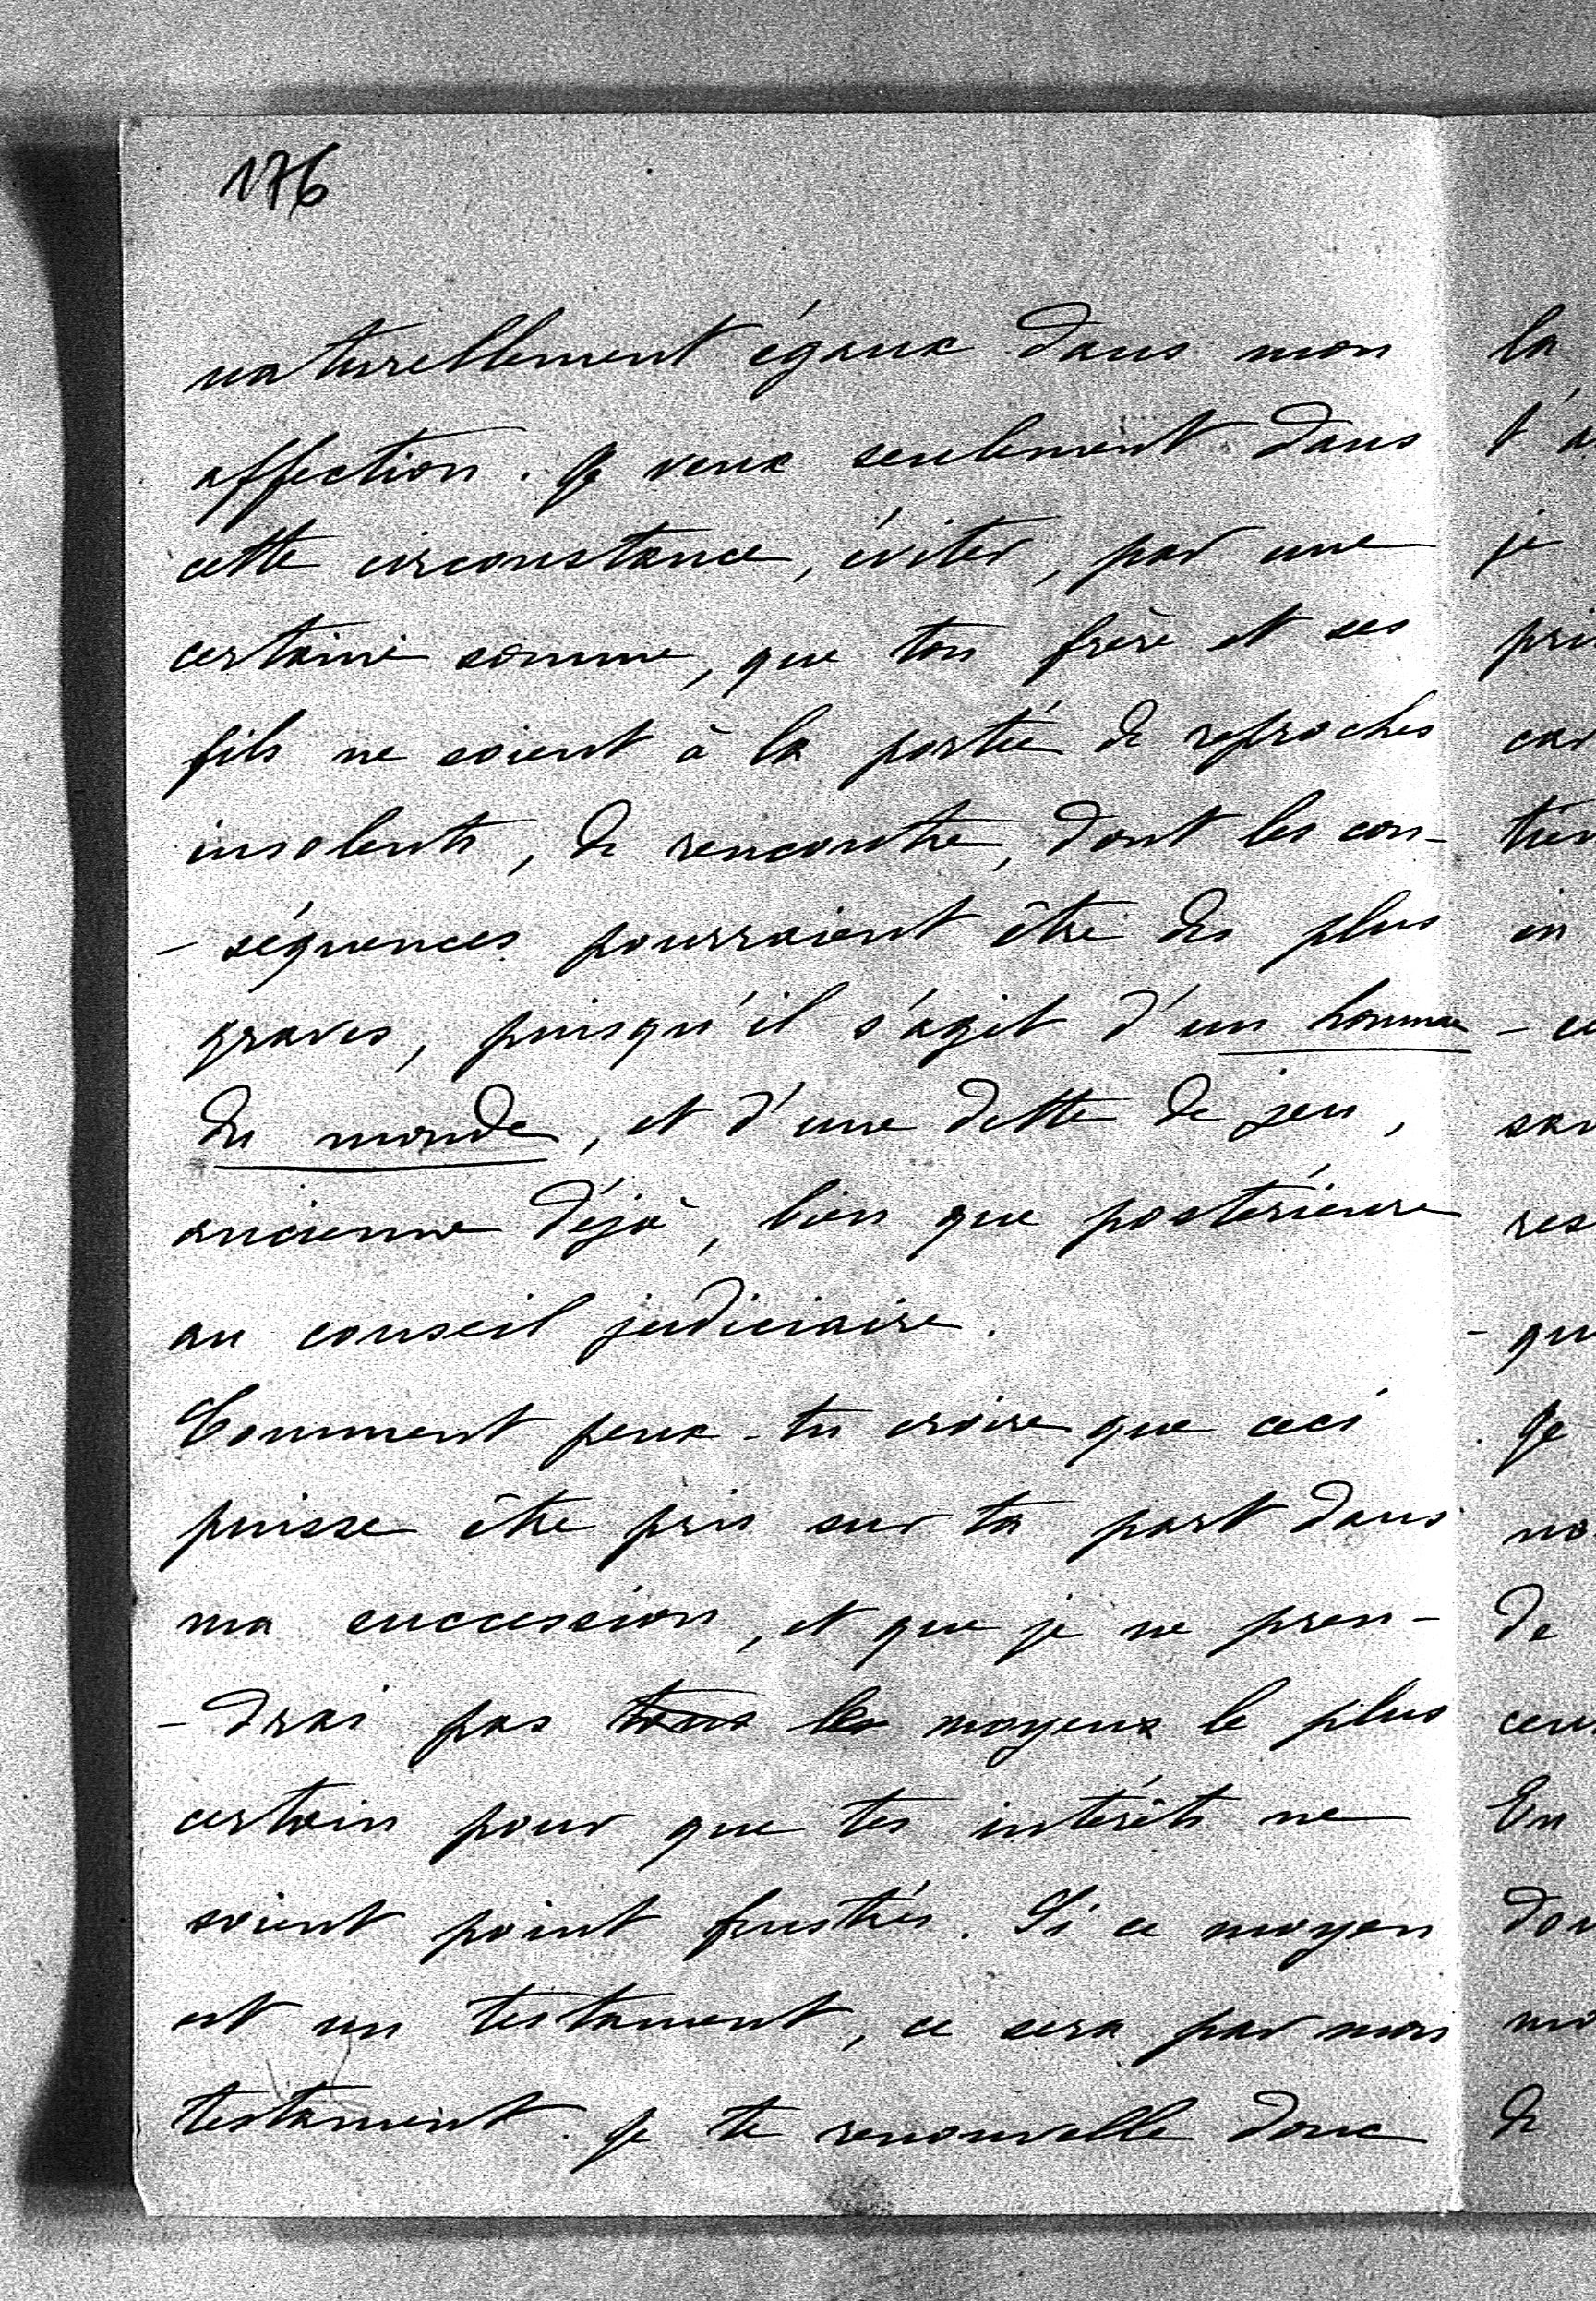 176
naturellement égaux dans mon
affection. Je veux seulement dans
cette circonstance, éviter, par une
certaine somme, que ton frère et ses
fils ne soient à la portée de reproches
insolents, de rencontre, dont les con-
- séquences pourraient être des plus
graves, puisqu'il s'agit d'un homme
du monde, et d'une dette de jeu,
ancienne déjà, bien que postérieure
au conseil judiciaire.
Comment peux-tu croire que ceci
puisse être pris sur ta part dans
ma succession, et que je ne pren-
- drai pas tous les moyens le plus
certain pour que tes intérêts ne
soient point frustrés. Si ce moyen
est un testament, ce sera par mon
testament. Je te renouvelle donc
la
je
pri
car
en
res
- qu
Je
no
de
En
de